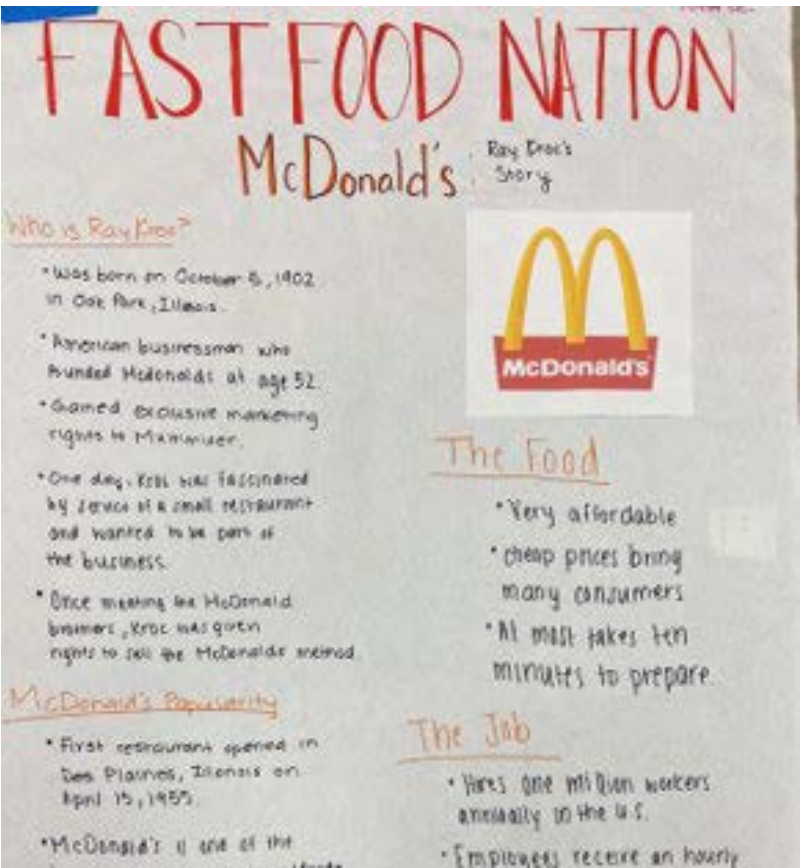 FAST FOOD NATION
McDonald's:
Ray Kroc's
Story
Who is Ray Kroc?
• Was born on October 5, 1902
in Oak Park, Illinois.
• American businessman who
founded McDonalds at age 52
• Gained exclusive marketing
rights to
• One day, Kroc was fascinated
by service of a small restaurant
and wanted to be part of
the business.
• Once meeting the McDonald
brothers, Kroc was given
rights to sell the McDonalds method.
McDonald's Popularity
• First restaurant opened in
Des Plaines, Illinois on
April 15, 1955.
• McDonald's is one of the
McDonald's
The Food
• Very affordable
• cheap prices bring
many consumers
• At most takes ten
minutes to prepare.
The Job
• Hires one million workers
annually in the U.S.
• Employees receive an hourly